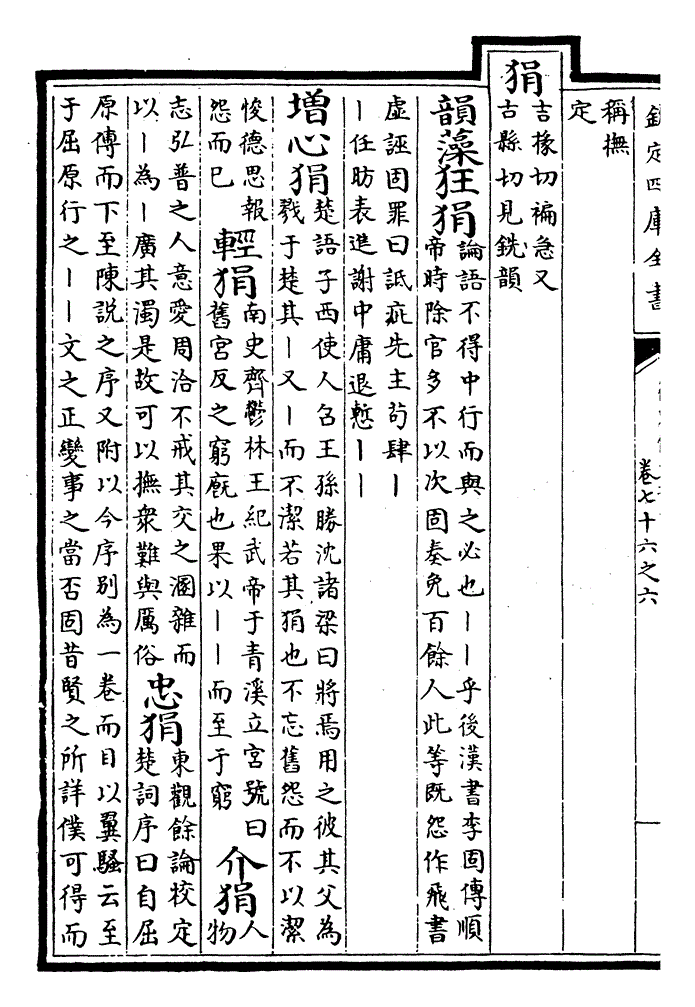 欽定四庫全書
卷七十六之六
稱撫
定
狷
吉掾切褊急又
古縣切見銑韻
韻藻狂狷
論語不得中行而與之必也丨丨乎後漢書李固傳順
帝時除官多不以次固奏免百餘人此等既怨作飛書
虛誣固罪曰詆疵先主茍肆丨
丨任昉表進謝中庸退慙丨丨
增心狷
楚語子西使人召王孫勝沈諸梁曰將焉用之彼其父為
戮于楚其丨又丨而不潔若其狷也不忘舊怨而不以潔
悛德思報
怨而已
輕狷
南史齊鬱林王紀武帝于青溪立宮號曰
舊宮反之窮廐也果以丨丨而至于窮
介狷
人物
志弘普之人意愛周洽不戒其交之溷雜而
以丨為丨廣其濁是故可以撫衆難與厲俗
忠狷
東觀餘論校定
楚詞序曰自屈
原傳而下至陳說之序又附以今序别為一卷而目以翼騷云至
于屈原行之丨丨文之正變事之當否固昔賢之所詳僕可得而